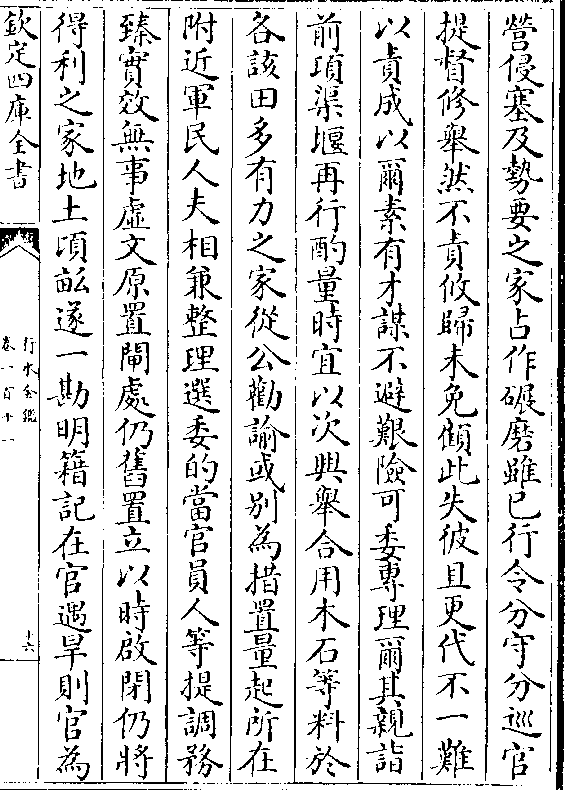 營侵塞及勢要之家占作碾磨雖已行令分守分巡官
提督修舉然不責攸歸未免傾此失彼且更代不一難
以責成以爾素有才謀不避艱險可委專理爾其親詣
前項渠堰再行酌量時宜以次興舉合用木石等料於
各該田多有力之家從公勸諭或别為措置量起所在
附近軍民人夫相兼整理選委的當官員人等提調務
臻實效無事虛文原置閘處仍舊置立以時啟閉仍將
得利之家地土頃畝遂一勘明籍記在官遇旱則官為
欽定四庫全書
行水金鑑
卷一百十一
十六